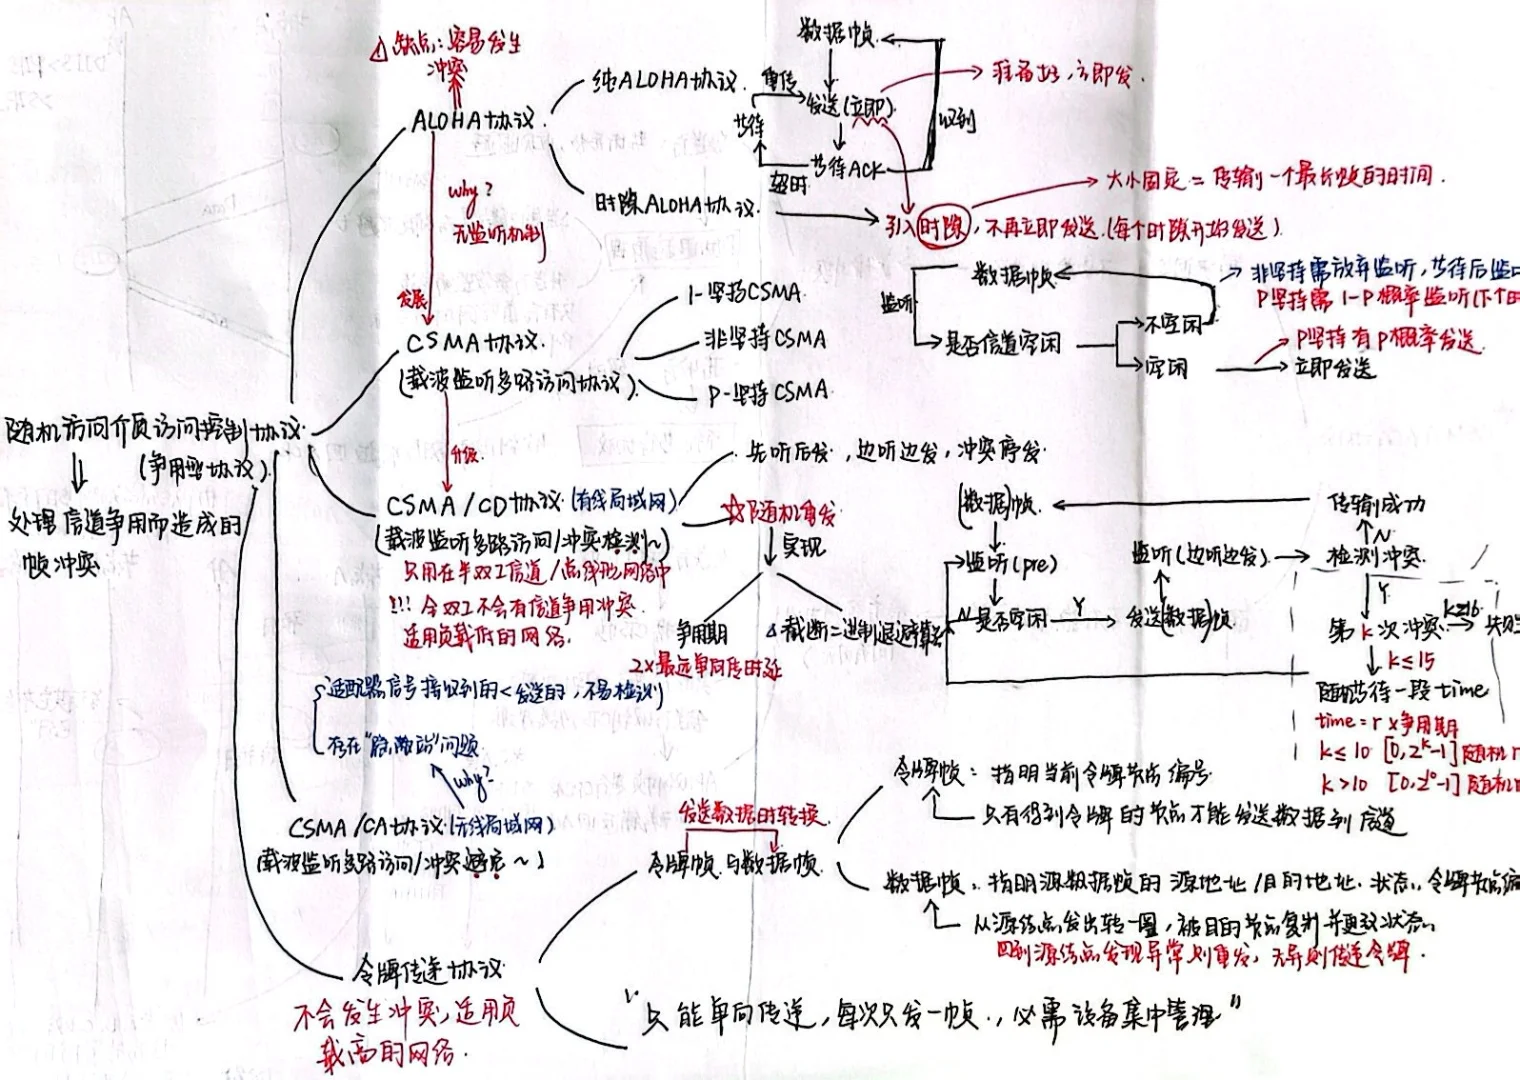 ⚠ 缺点：容易发生
冲突
ALOHA协议
纯ALOHA协议.
时隙ALOHA协议.
数据帧.
重传
发送(立即).
等待
等待ACK
超时
收到
准备好，立即发.
大小固定 = 传输一个最长帧的时间.
引入时隙，不再立即发送.(每个时隙开始发送).
why?
无监听机制
发展
CSMA协议.
(载波监听多路访问协议).
1-坚持CSMA.
非坚持CSMA
P-坚持CSMA.
监听
数据帧
是否信道空闲
不空闲
空闲
立即发送
非坚持需放弃监听，等待后监
P坚持需 1-P概率监听(下个时
P坚持有P概率发送.
随机访问介质访问控制协议.
(争用型协议).
处理信道争用而造成的
帧冲突
升级.
CSMA/CD协议.(有线局域网)
(载波监听多路访问/冲突检测~)
只用在半双工信道/总线形网络中
!!! 全双工不会有信道争用冲突.
适用负载低的网络.
先听后发，边听边发，冲突停发.
☆随机重发
实现
争用期
2×最远单向传时延
截断二进制退避算法
(数据)帧.
监听(pre)
N
是否空闲
Y
发送(数据)帧
监听(边听边发).
检测冲突.
N
传输成功
Y
第k次冲突.
k≥16
k≤15
随机等待一段time
time = r×争用期
k≤10 [0,2^k-1]随机r
k>10 [0,2^10-1]随机r
适配器信号接收到的<发送的，不易检测
存在"隐蔽站"问题
why?
CSMA/CA协议.(无线局域网)
(载波监听多路访问/冲突避免~)
令牌传递协议.
不会发生冲突，适用负
载高的网络.
发送数据时转换.
令牌帧与数据帧.
令牌帧：指明当前令牌节点编号.
只有得到令牌的节点才能发送数据到信道
数据帧：指明源数据帧的源地址/目的地址.状态.令牌节点编
从源结点发出转一圈，被目的节点复制并更改状态.
回到源结点发现异常则重发，无异则传递令牌.
"只能单向传递，每次只发一帧.，必需设备集中管理"